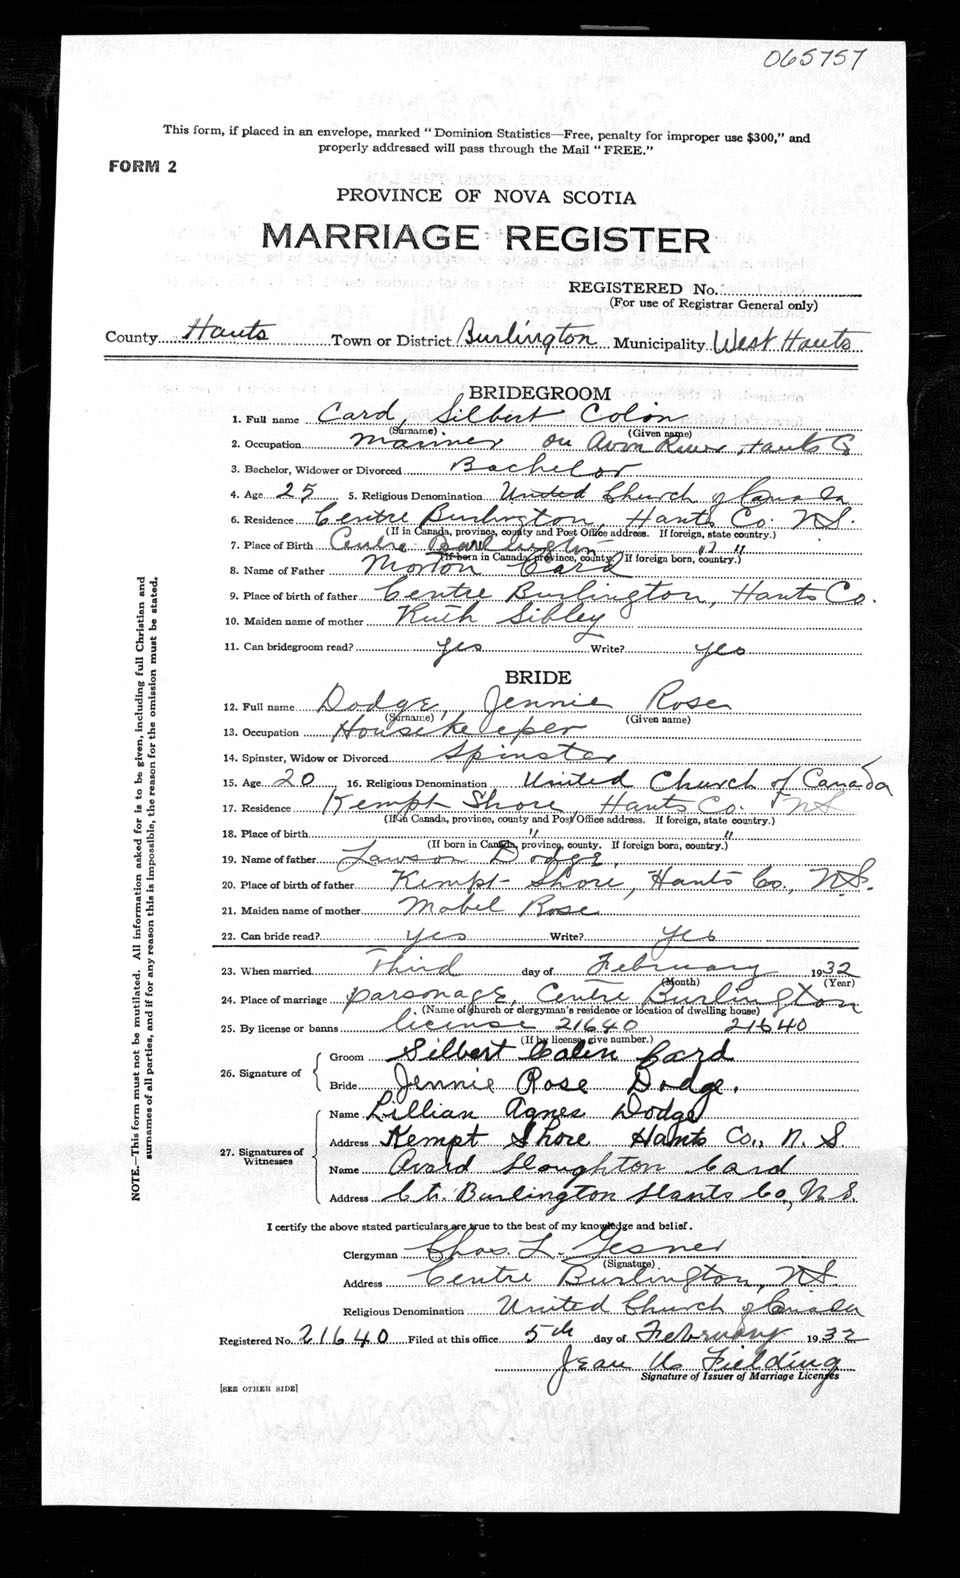 065757
This form, if placed in an envelope, marked "Dominion Statistics—Free, penalty for improper use $300," and
properly addressed will pass through the Mail "FREE."
FORM 2
PROVINCE OF NOVA SCOTIA
MARRIAGE REGISTER
REGISTERED No.
(For use of Registrar General only)
County Hants Town or District Burlington Municipality West Hants
BRIDEGROOM
1. Full name Card, Silbert Colin
(Surname) (Given name)
2. Occupation Mariner on Avon River, Hants Co
3. Bachelor, Widower or Divorced Bachelor
4. Age 25 5. Religious Denomination United Church of Canada
6. Residence Centre Burlington, Hants Co. N.S.
(If in Canada, province, county and Post Office address. If foreign, state country.)
7. Place of Birth Centre Burlington " "
(If born in Canada, province, county. If foreign born, country.)
8. Name of Father Morton Card
9. Place of birth of father Centre Burlington, Hants Co.
10. Maiden name of mother Ruth Sibley
11. Can bridegroom read? yes Write? yes
BRIDE
12. Full name Dodge, Jennie Rose
(Surname) (Given name)
13. Occupation Housekeeper
14. Spinster, Widow or Divorced Spinster
15. Age 20 16. Religious Denomination United Church of Canada
17. Residence Kempt Shore Hants Co. NS
(If in Canada, province, county and Post Office address. If foreign, state country.)
18. Place of birth " "
(If born in Canada, province, county. If foreign born, country.)
19. Name of father Lawson Dodge,
20. Place of birth of father Kempt Shore, Hants Co., N.S.
21. Maiden name of mother Mabel Rose
22. Can bride read? yes Write? yes
23. When married Third day of February 1932
(Month) (Year)
24. Place of marriage parsonage, Centre Burlington
(Name of church or clergyman's residence or location of dwelling house)
25. By license or banns license 21640 21640
(If by license, give number.)
26. Signature of Groom Silbert Colin Card
Bride Jennie Rose Dodge.
27. Signatures of Witnesses Name Lillian Agnes Dodge
Address Kempt Shore Hants Co., N. S.
Name Avard Houghton Card
Address Ctr. Burlington Hants Co, N.S.
I certify the above stated particulars are true to the best of my knowledge and belief.
Clergyman Chas. L. Gesner
(Signature)
Address Centre Burlington, N.S.
Religious Denomination United Church of Canada
Registered No. 21640 Filed at this office 5th day of February 1932
Jean Fielding
Signature of Issuer of Marriage Licenses
[SEE OTHER SIDE]
NOTE.—This form must not be mutilated. All information asked for is to be given, including full Christian and
surnames of all parties, and if for any reason this is impossible, the reason for the omission must be stated.